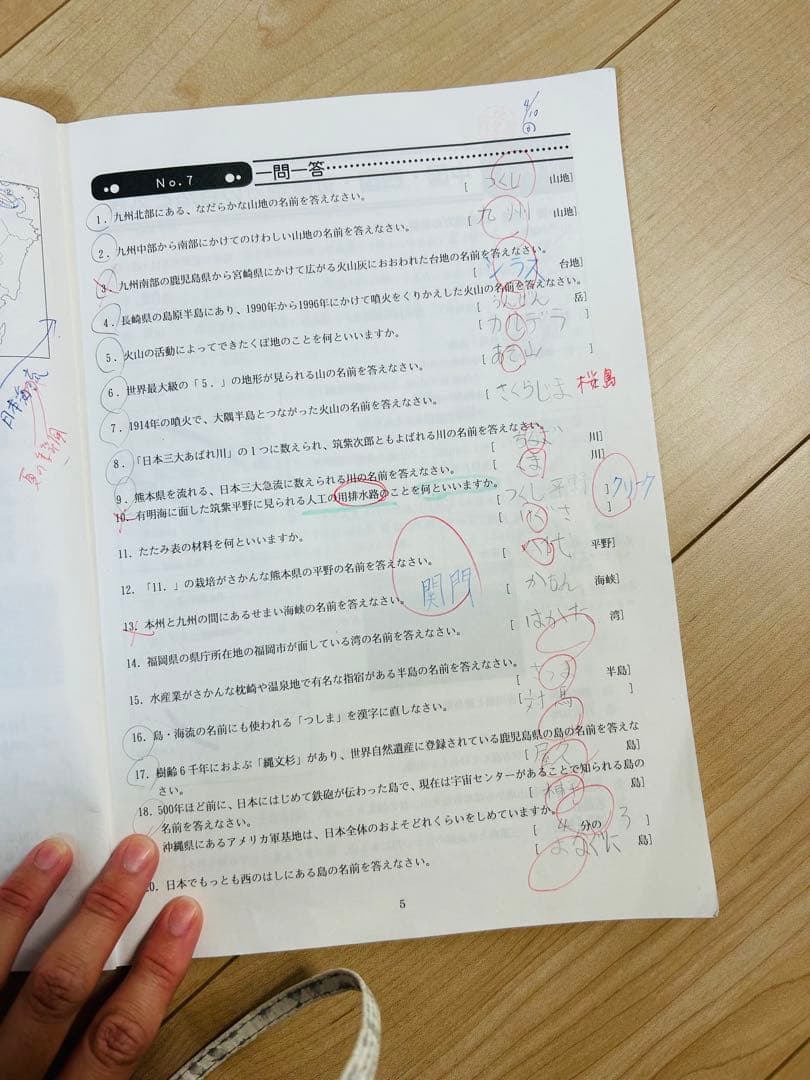 4/10
No.7 一問一答
1. 九州北部にある、なだらかな山地の名前を答えなさい。 [ つくし 山地]
2. 九州中部から南部にかけてのけわしい山地の名前を答えなさい。 [ 九州 山地]
3. 九州南部の鹿児島県から宮崎県にかけて広がる火山灰におおわれた台地の名前を答えなさい。 [ シラス 台地]
4. 長崎県の島原半島にあり、1990年から1996年にかけて噴火をくりかえした火山の名前を答えなさい。 [ うんぜん 岳]
5. 火山の活動によってできたくぼ地のことを何といいますか。 [ カルデラ ]
6. 世界最大級の「5.」の地形が見られる山の名前を答えなさい。 [ あそ山 ]
7. 1914年の噴火で、大隅半島とつながった火山の名前を答えなさい。 [ さくらじま 桜島
8. 「日本三大あばれ川」の1つに数えられ、筑紫次郎ともよばれる川の名前を答えなさい。 [ 川]
9. 熊本県を流れる、日本三大急流に数えられる川の名前を答えなさい。 [ くま 川]
10. 有明海に面した筑紫平野に見られる人工の用排水路のことを何といいますか。 [ つくし平野 ] クリーク
11. たたみ表の材料を何といいますか。 [ いぐさ ]
12. 「11.」の栽培がさかんな熊本県の平野の名前を答えなさい。 [ 平野]
13. 本州と九州の間にあるせまい海峡の名前を答えなさい。 関門 [ かもん 海峡]
14. 福岡県の県庁所在地の福岡市が面している湾の名前を答えなさい。 [ はかた 湾]
15. 水産業がさかんな枕崎や温泉地で有名な指宿がある半島の名前を答えなさい。 [ さつま 半島]
16. 島・海流の名前にも使われる「つしま」を漢字に直しなさい。 [ 対馬 ]
17. 樹齢6千年におよぶ「縄文杉」があり、世界自然遺産に登録されている鹿児島県の島の名前を答えな
さい。 [ 屋久 島]
18. 500年ほど前に、日本にはじめて鉄砲が伝わった島で、現在は宇宙センターがあることで知られる島の
名前を答えなさい。 [ 島]
沖縄県にあるアメリカ軍基地は、日本全体のおよそどれくらいをしめていますか。 [ 4 分の 3 ]
20. 日本でもっとも西のはしにある島の名前を答えなさい。 [ よなぐに 島]
5
日本海流